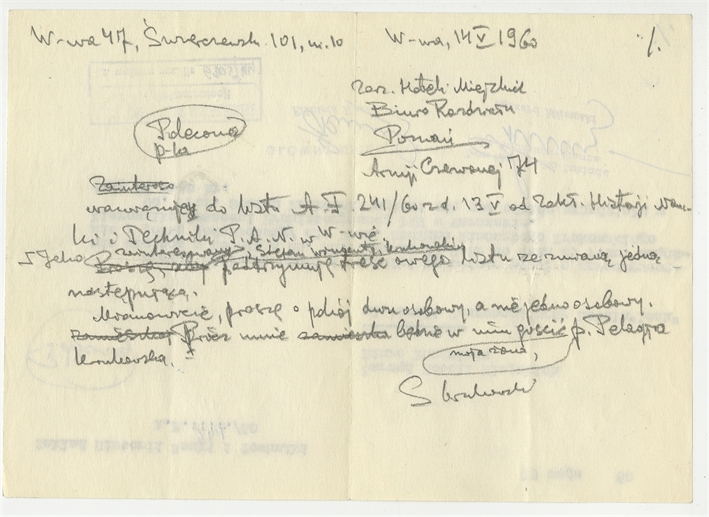 W-wa 47, Świerczewsk. 101, m. 10
W-wa, 14 V 1960
1.
Zarz. Hoteli Miejskich
Biuro Rozdziału
Poznań
Armji Czerwonej 74
Polecona
p-ka
nawiązując do listu A 241/60 z d. 13 V od Zakł. Historji Nau-
ki i Techniki P.A.N. w W-wie
Jako zainteresowany, Stefan
podtrzymuję treść owego listu ze zmianą jedną
następującą.
Mianowicie, proszę o pokój dwu osobowy, a nie jedno osobowy.
Prócz mnie będzie w nim gościć p. Pelagia
Krukowska
moja żona,
S Krukowski